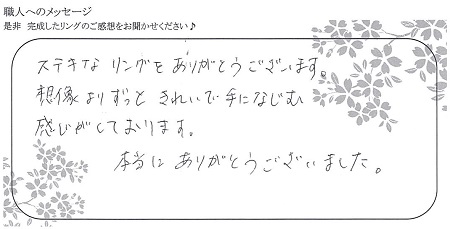 職人へのメッセージ
是非 完成したリングのご感想をお聞かせください♪
ステキな リングを ありがとうございます。
想像よりずっと きれいで 手になじむ
感じがしております。
本当に ありがとうございました。